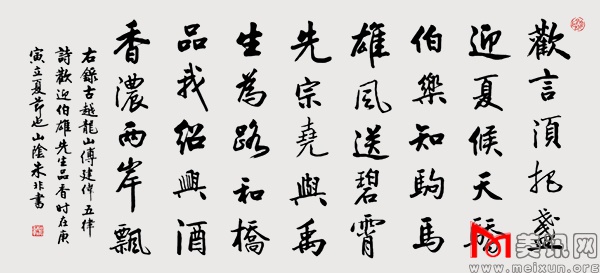 歡言須把盞
迎夏候天驕
伯樂知駒馬
雄風送碧霄
先宗堯與禹
生為路和橋
品我紹興酒
香濃兩岸飄
右錄古越龍山傅建偉五律
詩歡迎伯雄先生品香時在庚
寅立夏節也山陰朱非書
美讯网
www.meixun.org